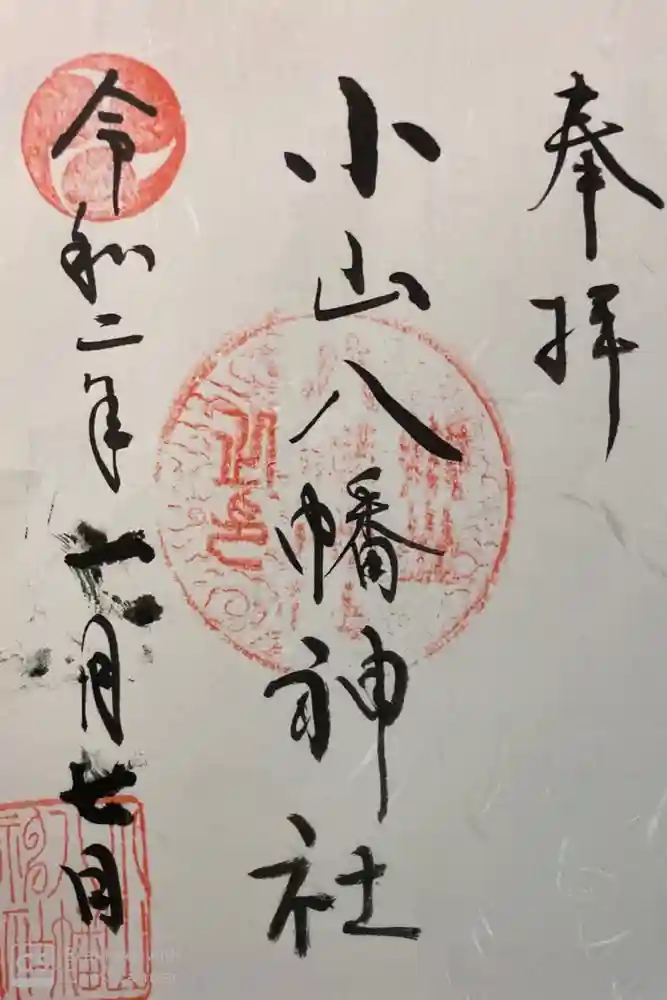 奉拝
小山八幡神社
令和二年月七日